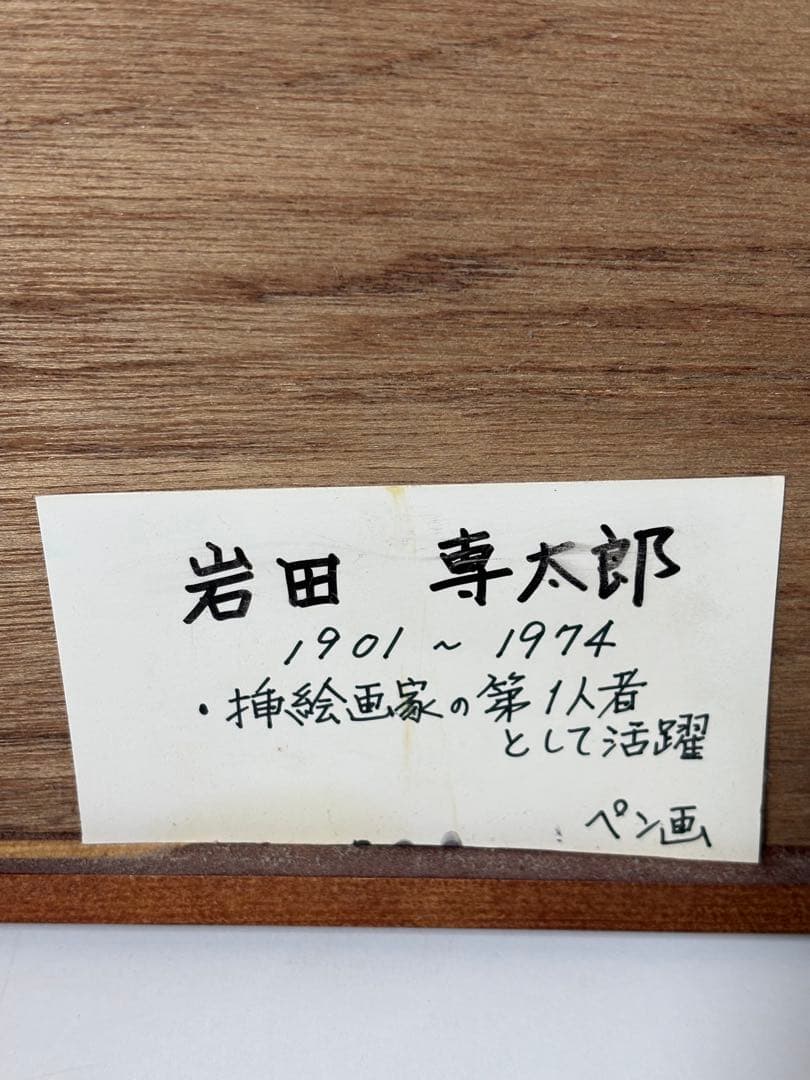 岩田 専太郎
1901 ~ 1974
・挿絵画家の第1人者
として活躍
ペン画